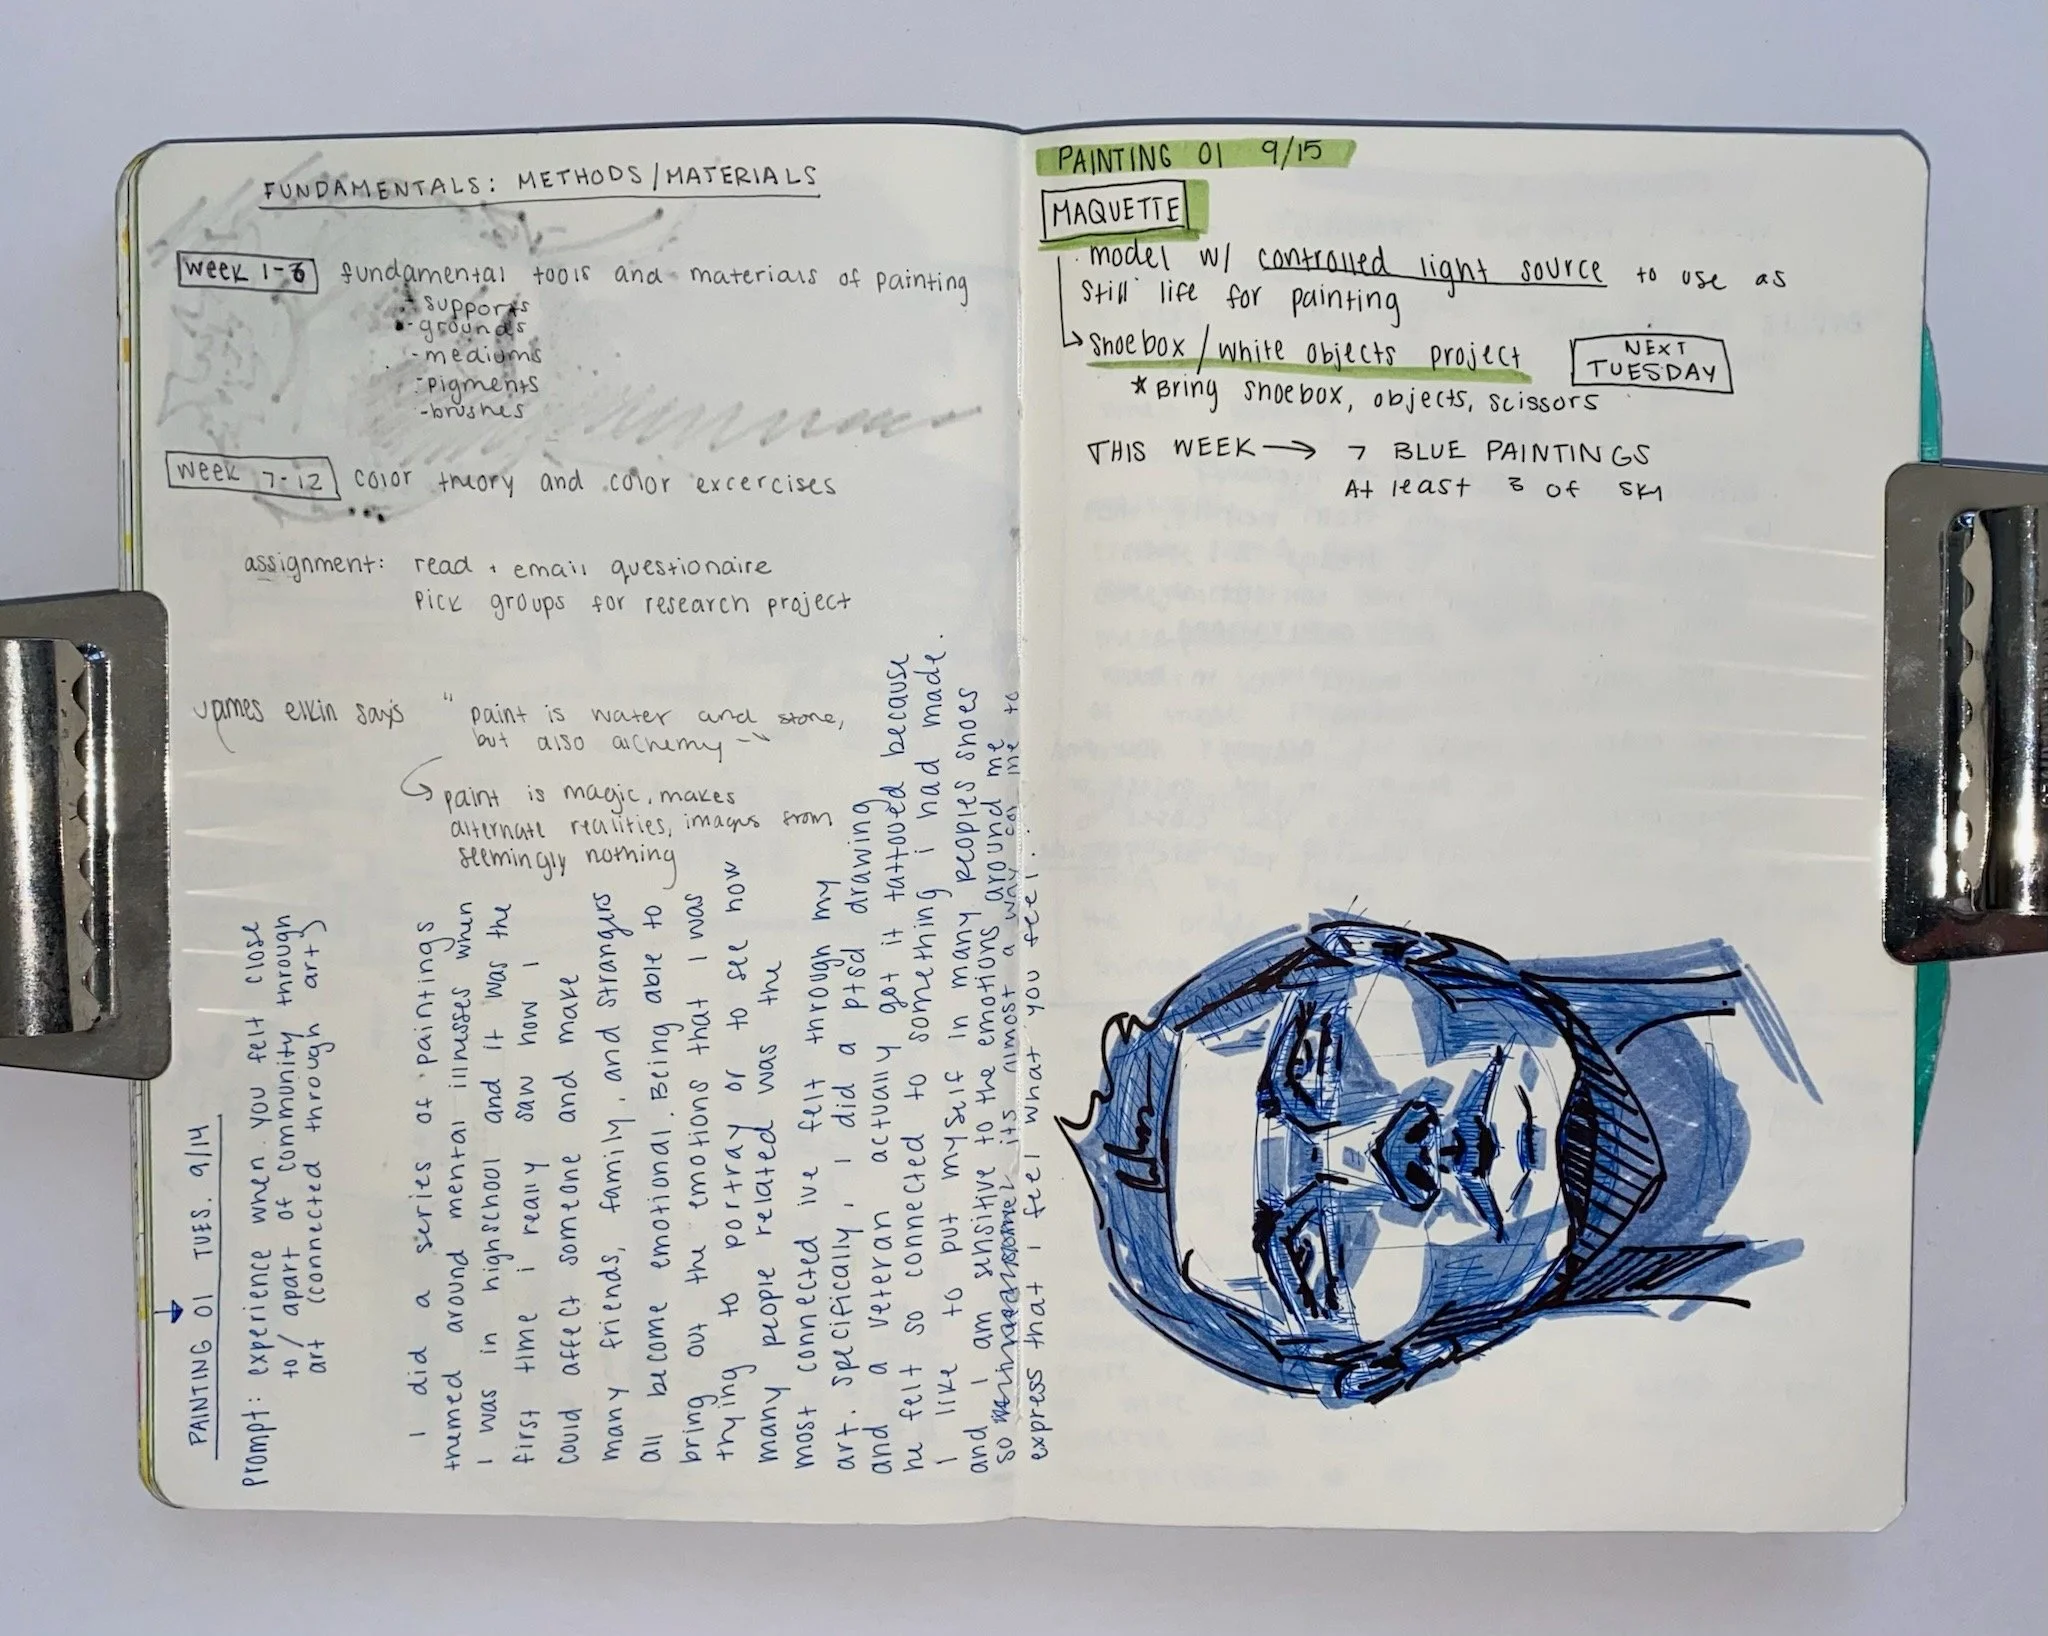 FUNDAMENTALS: METHODS/MATERIALS
week 1-6 fundamental tools and materials of painting
- supports
- grounds
- mediums
- pigments
- brushes
week 7-12 color theory and color excercises
assignment: read + email questionaire
pick groups for research project
James elkin says " paint is water and stone,
but also alchemy -"
paint is magic, makes
alternate realities, images from
seemingly nothing
PAINTING 01 TUES. 9/14
prompt: experience when you felt close
to/apart of community through
art (connected through art)
I did a series of paintings
themed around mental illnesses when
I was in highschool and it was the
first time i really saw how I
could affect someone and make
many friends, family, and strangers
all become emotional. Being able to
bring out the emotions that I was
trying to portray or to see how
many people related was the
most connected ive felt through my
art. specifically, I did a ptsd drawing
and a veteran actually got it tattooed because
he felt so connected to something i had made.
I like to put myself in many peoples shoes
and I am sensitive to the emotions around me
so its almost a way for me to
express that i feel what you feel.
PAINTING 01 9/15
MAQUETTE
model w/ controlled light source to use as
still life for painting
shoebox/white objects project
NEXT
TUESDAY
* Bring shoebox, objects, scissors
THIS WEEK → 7 BLUE PAINTINGS
At least 3 of sky